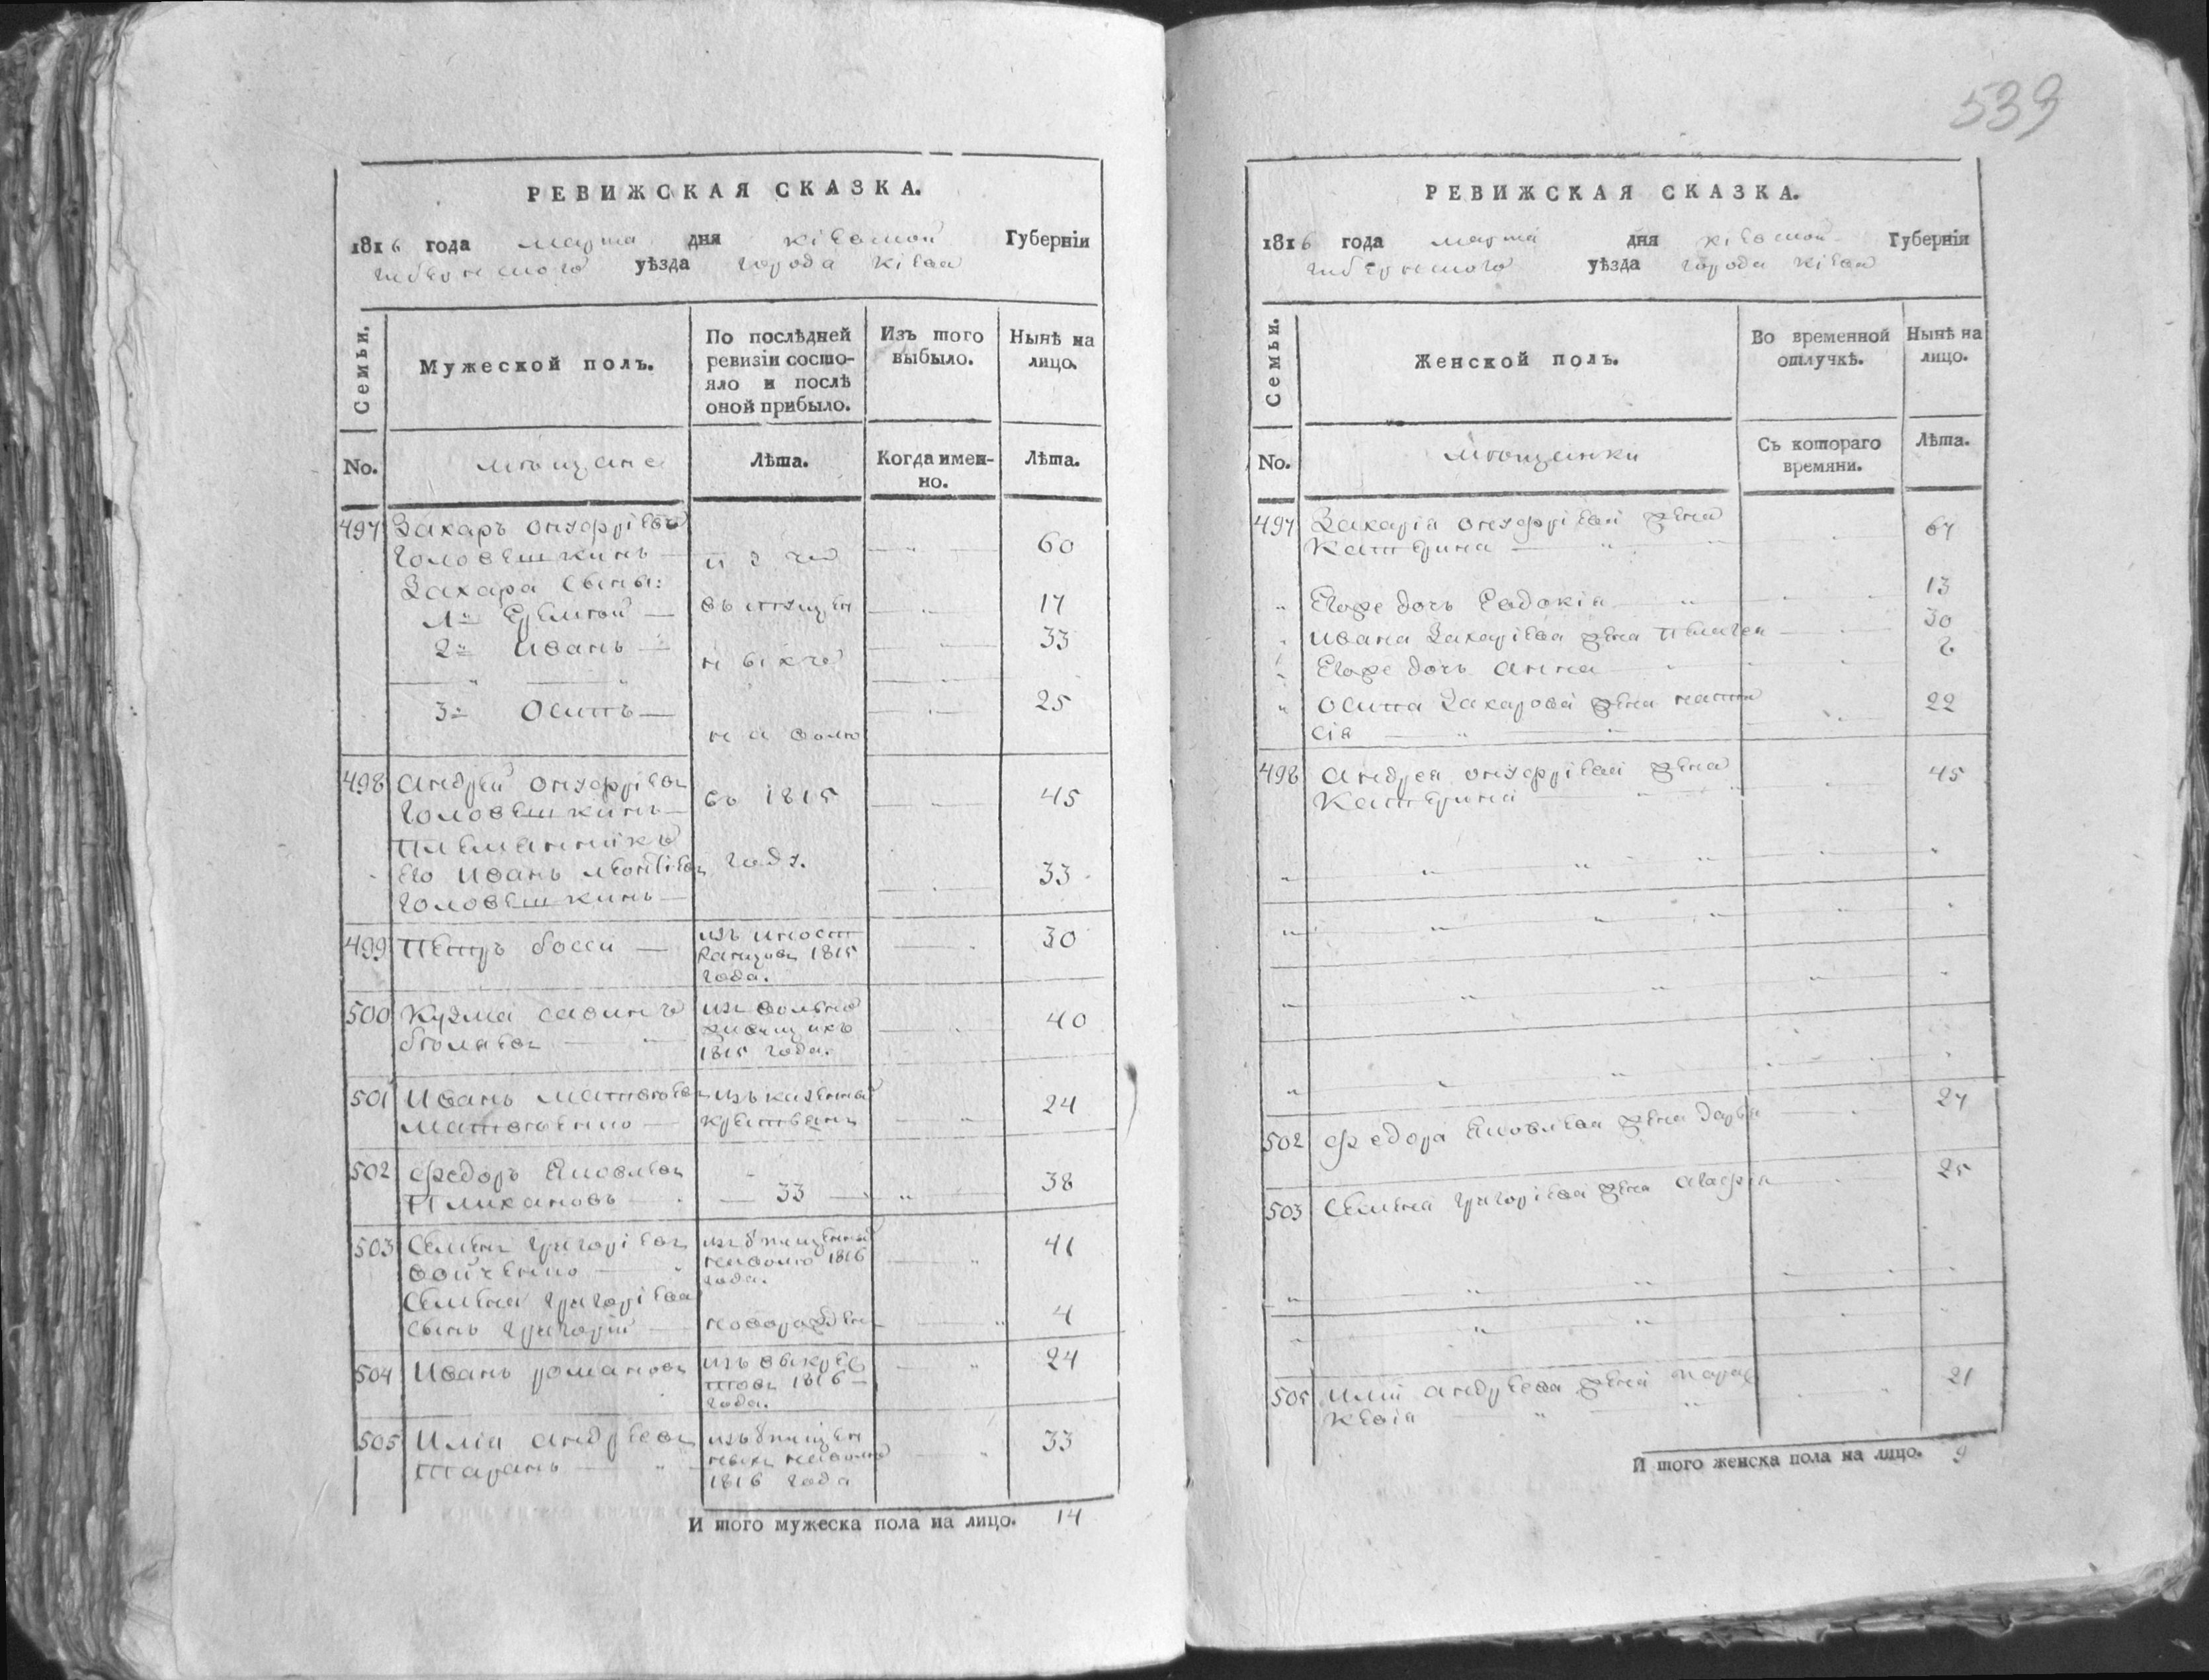 539
РЕВИЖСКАЯ СКАЗКА.
1816 года марта дня кіевской Губерніи
уѣзда города Кіева
Семьи.
Мужеской полъ.
По послѣдней ревизіи состо-
яло и послѣ
оной прибыло.
Изъ того выбыло.
Нынѣ на лицо.
No.
мѣщане
Лѣта.
Когда имен-
но.
Лѣта.
497 Захаръ Онуфріевъ
Головешкинъ 60
Захара сыны:
1й Еремѣй 17
2й Иванъ 33
3й Осипъ 25
на волю
498 Андрей Онуфріевъ
Головешкинъ въ 1815 45
Племянникъ
его Иванъ Леонтіевъ году. 33
Головешкинъ
499 Петръ Босси изъ иност
ранцовъ 1815
года. 30
500 Кузма Савинъ
изъ вольно
живущихъ
1815 года. 40
501 Иванъ Матвѣевъ
Матвѣенко
изъ казенныхъ
крестьянъ 24
502 Федоръ Яковлевъ
Плихановъ 33 38
503 Семенъ Григоріевъ
Войченко
изъ отпущенныхъ
на волю 1816
года. 41
Семена Григоріева
сынъ Григорій новорожден 4
504 Иванъ Романовъ
изъ выкрес
товъ 1816
года. 24
505 Илія Андреевъ
Таранъ
изъ отпущен
ныхъ на волю
1816 года 33
И того мужеска пола на лицо. 14
РЕВИЖСКАЯ СКАЗКА.
1816 года марта дня кіевской Губерніи
уѣзда города Кіева
Семьи.
Женской полъ.
Во временной
отлучкѣ.
Нынѣ на
лицо.
No.
мѣщанки
Съ котораго
времяни.
Лѣта.
497 Захарія Онуфріева жена
Катерина 67
Егоже дочь Евдокія 13
Ивана Захаріева жена Пелагея 30
Егоже дочь Анна
Осипа Захарова жена Наста
сія 22
498 Андрея Онуфріева жена
Катерина 45
502 Федора Яковлева жена Дарья 27
503 Семена Григоріева жена Агафія 25
505 Иліи Андреева жена Парас
кевія 21
И того женска пола на лицо. 9